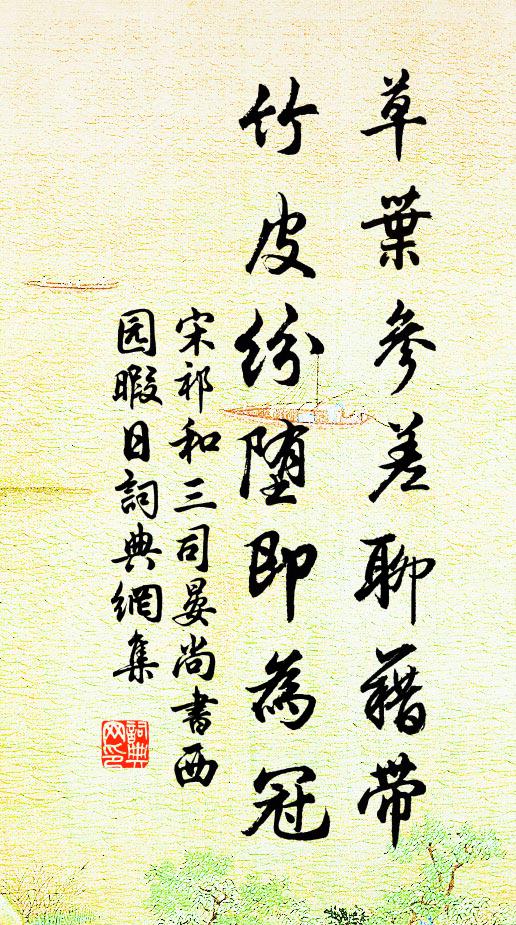 草葉參差聊藉帶
竹皮紛墮即為冠
宋祁和三司晏尚書西
园暇日詞典網集
詞典网印